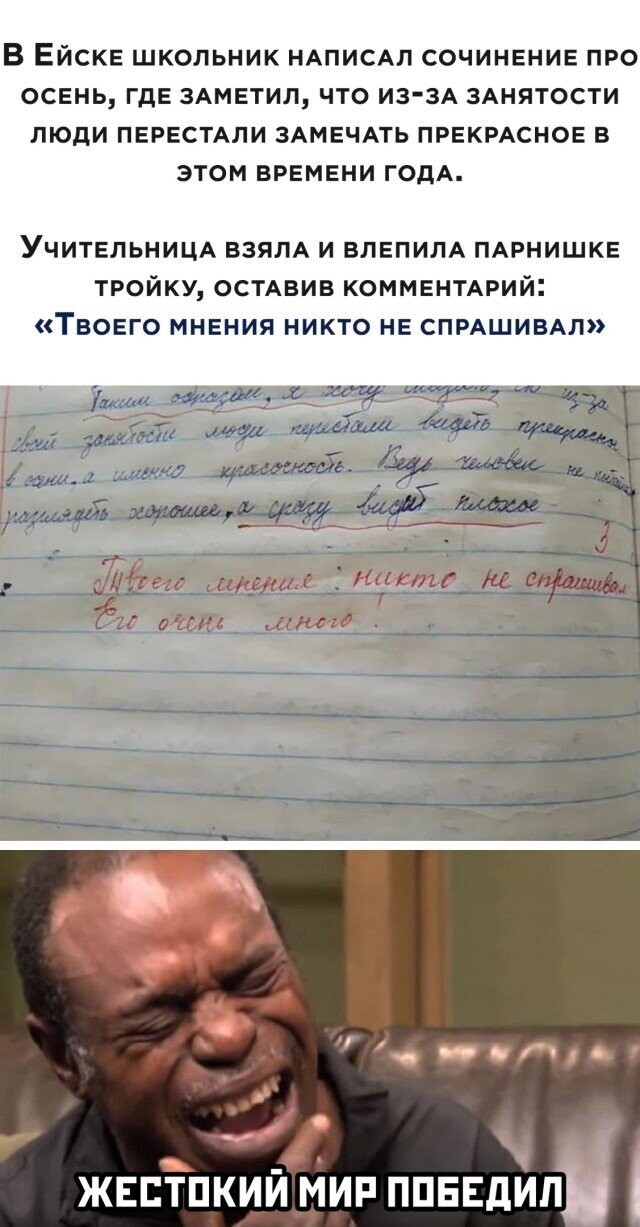 В Ейске школьник написал сочинение про
осень, где заметил, что из-за занятости
люди перестали замечать прекрасное в
этом времени года.
Учительница взяла и влепила парнишке
тройку, оставив комментарий:
«Твоего мнения никто не спрашивал»
Таким образом, я хочу из-за
своей занятости люди перестали видеть прекрасн
в осени, а именно красосность. Ведь человек не
разглядеть хорошее, а сразу видит плохое
3
Твоего мнения никто не спрашивал
Его очень много!
ЖЕСТОКИЙ МИР ПОБЕДИЛ